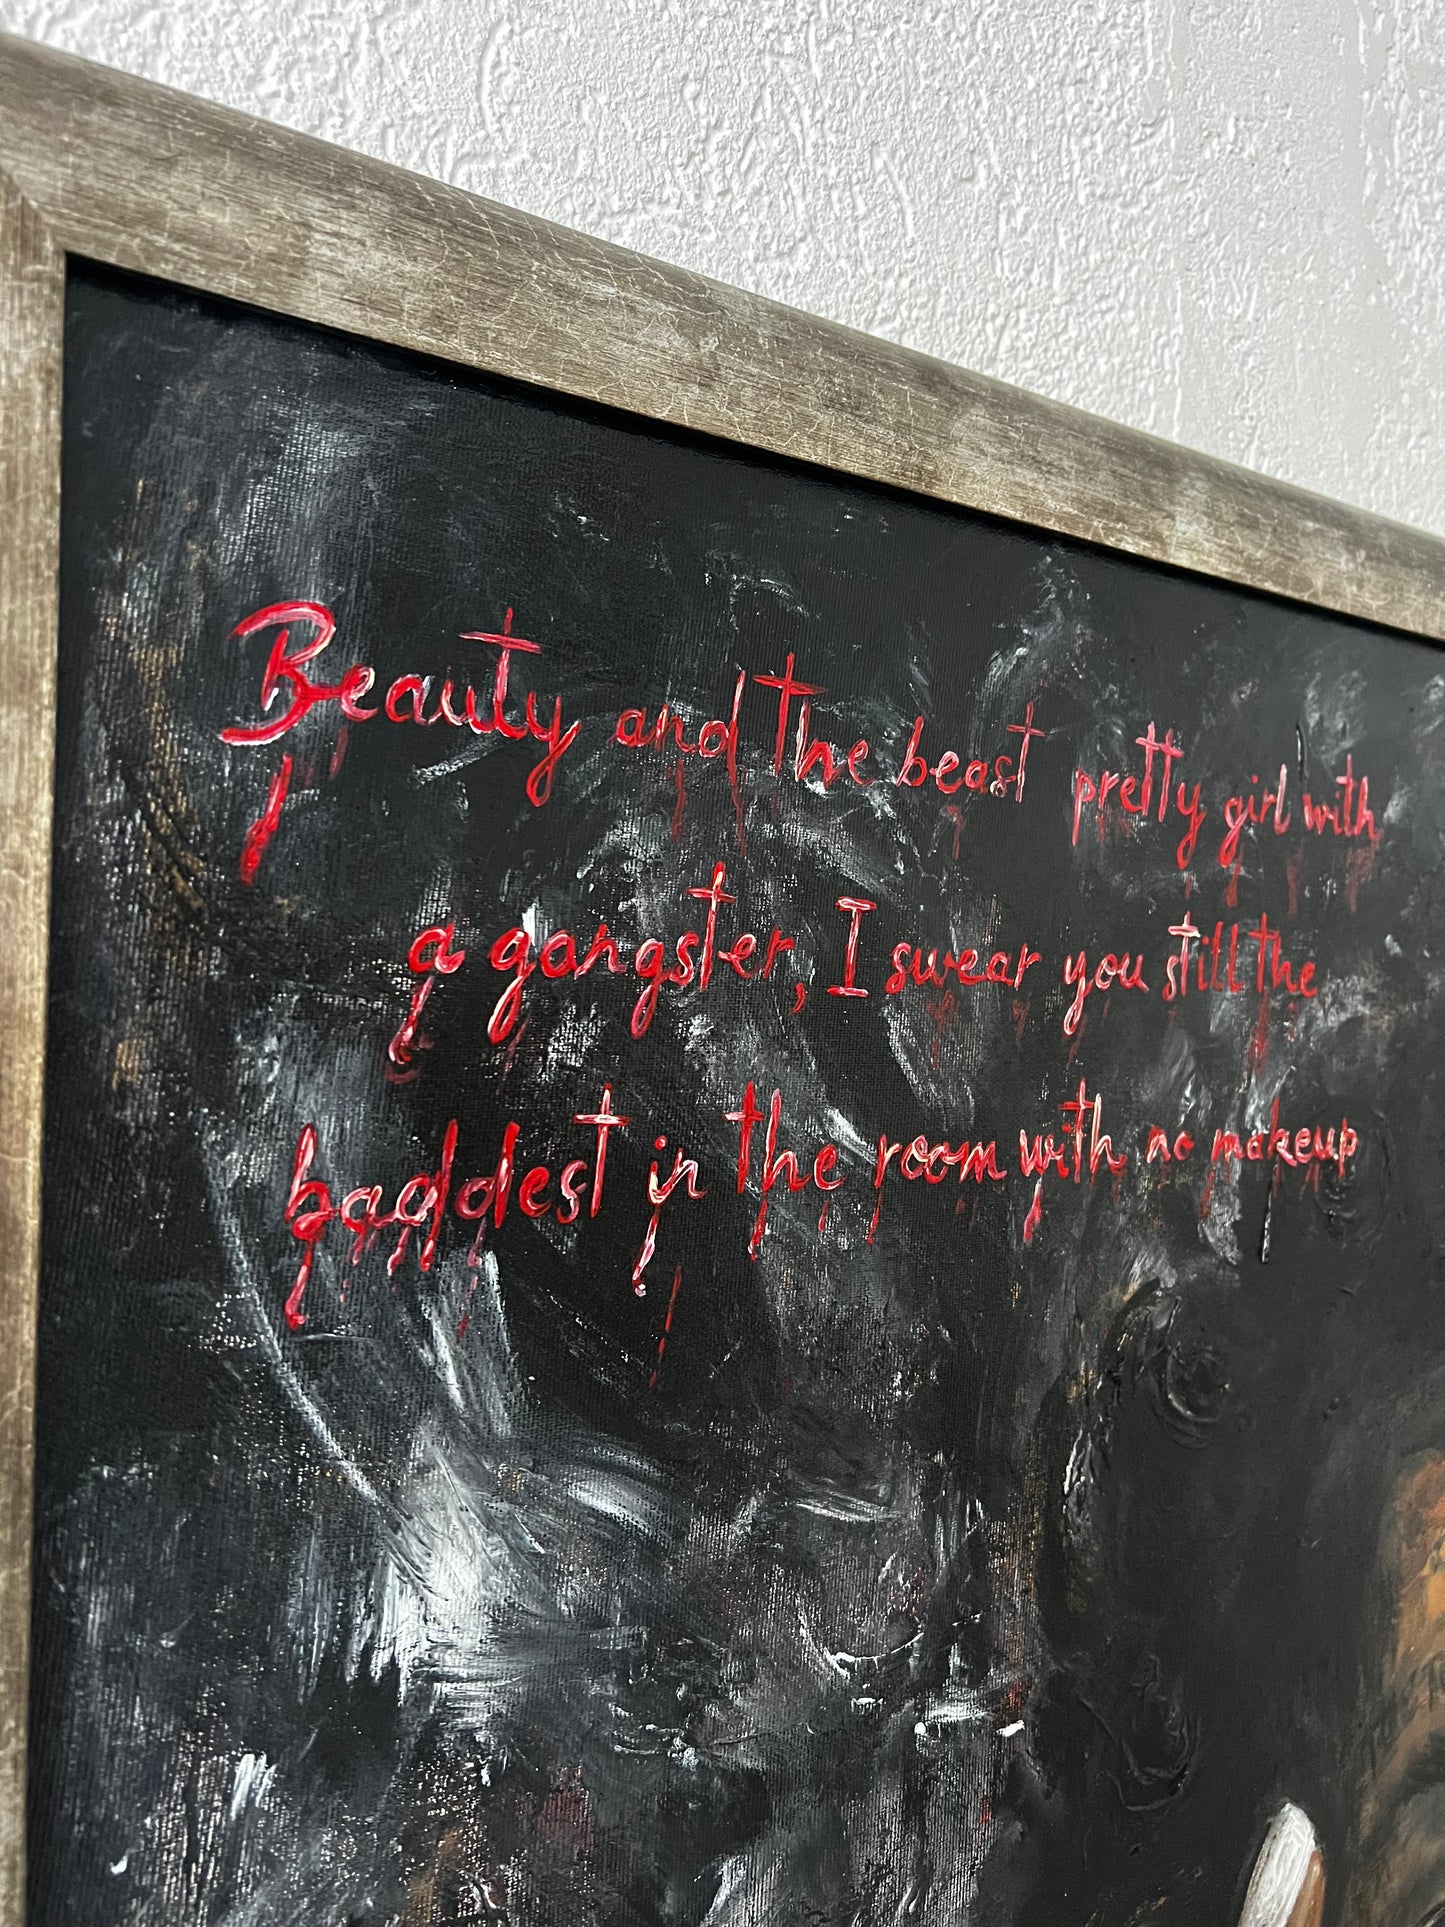 Beauty and the beast pretty girl with
a gangster, I swear you still the
baddest in the room with no makeup